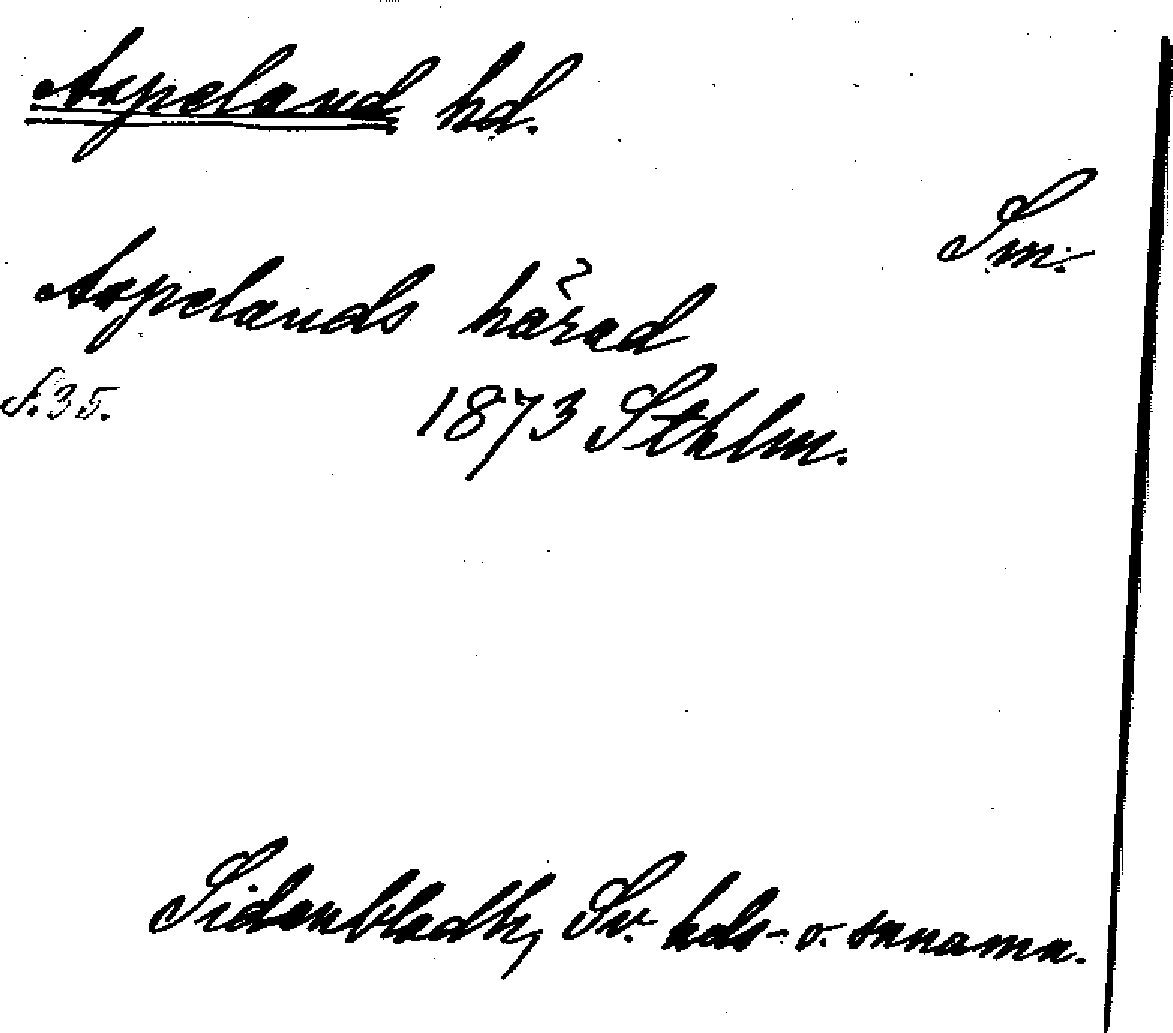 Aspeland hd.
Sm.
Aspelands härad
s. 35.
1873 Sthlm.
Sidenbladh, Sv. hds- o. snnamn.